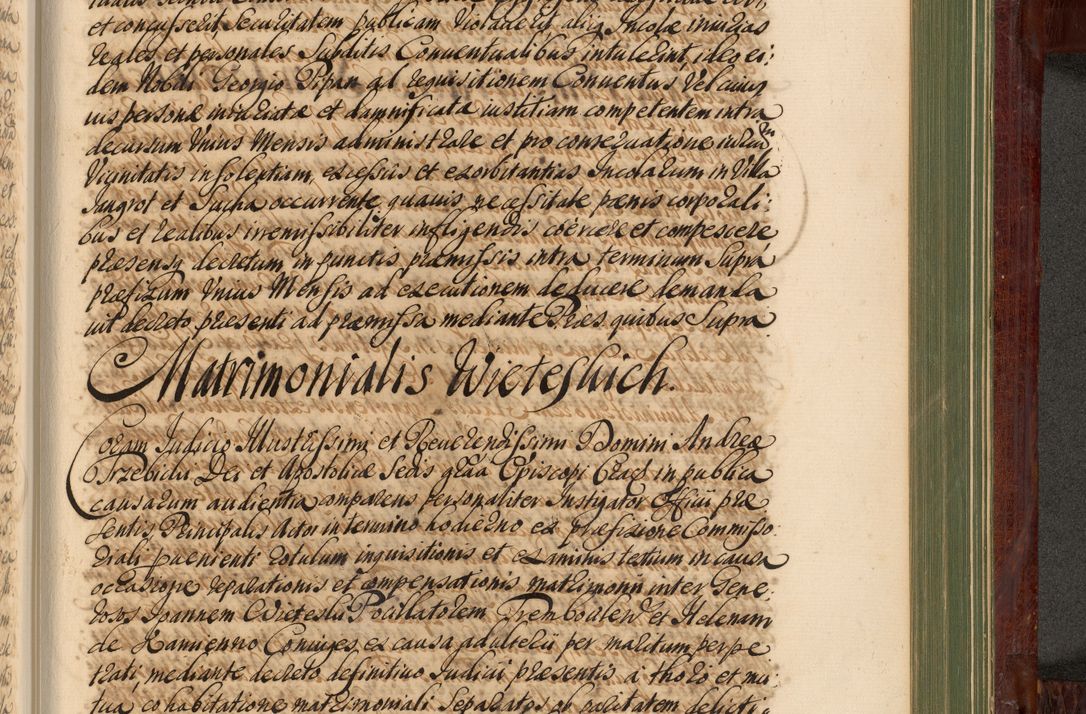 et concusserit securitatem publicam violaverit alias Incolae iniurias
reales et personales Subditis Conventualibus intulerint, ideo ei:
dem Nobili Georgio Pipan ad requisitionem Conventus vel cuius
vis personae iniuriatae et damnificatae iustitiam competentem intra
decursum unius Mensis administrare et pro conservatione
Vicinitatis insolentiam, excessus et exorbitantias Incolarum in Villa
Jangrot et Sucha occurrente quavis necessitate paenis corporali:
bus et realibus irremissibiliter infligendis coercere et compescere
praesens decretum in punctis praemissis intra terminum supra
praefixum unius Mensis ad executionem deducere demanda
vit decreto praesenti ad praemissa mediante Praes. quibus Supra
Matrimonialis Wieteskich.
Coram Judicio Illustrissimi et Reverendissimi Domini Andreae
Trzebicki Dei et Apostolicae Sedis graa Episcopi Crac in publica
causarum audientia comparens personaliter Instigator Officii prae
sentis, Principalis Actor in termino hodierno ex praefixione Commisso:
riali provenienti rotulum inquisitionis et examinis testium in causa
occasione separationis et compensationis matrimonii inter Gene
rosos Joannem Wieteski Pocillatorem Trembovlens et Helenam
de Kamienno Coniuges, ex causa adulterii per maritum perpe
trati, mediante decreto definitivo Judicii praesentis a thoro et mu:
tua cohabitatione matrimoniali separatos ob qualitatem delicti